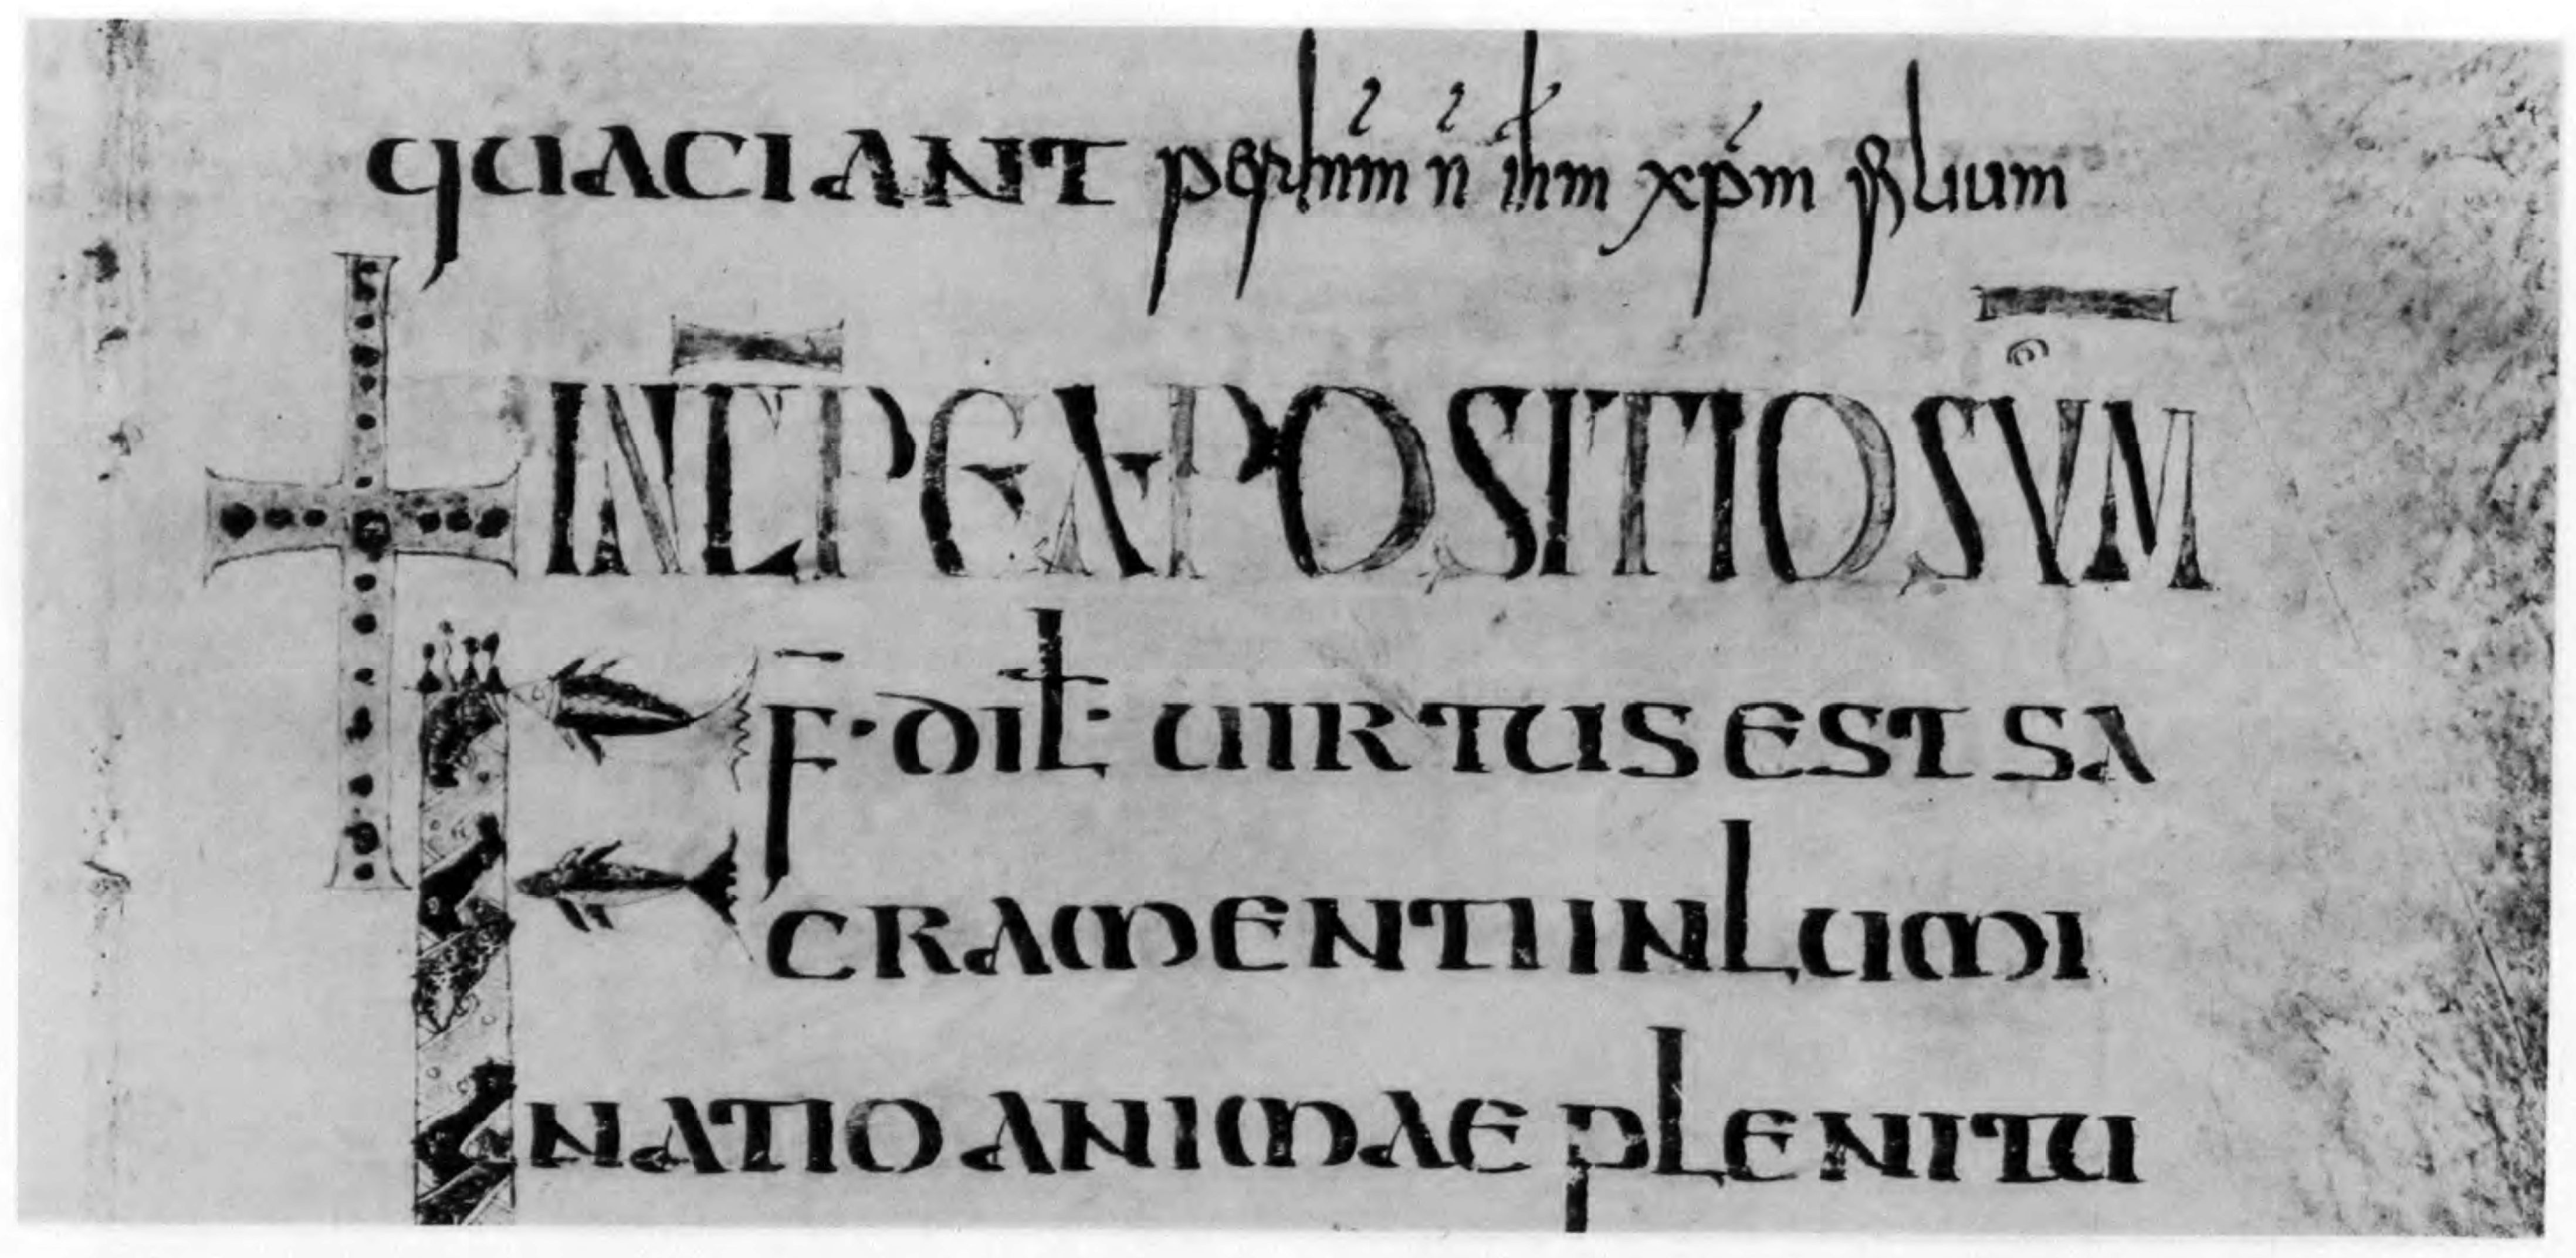 quaciant per dn̄m n̄ ih̄m xp̄m filium
INC̄P EXPOSITIO SVM̄
FF̄· dil̄: uirtus est sa
cramenti inlumi
natio animae plenitu